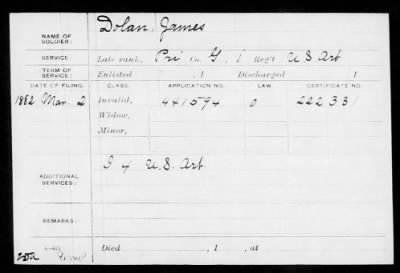 Dolan, James
NAME OF SOLDIER:
SERVICE: Late rank, Pri Co. G, 1 Reg't U S Art
TERM OF SERVICE: Enlisted , 1 Discharged 1
DATE OF FILING. CLASS. APPLICATION NO. LAW. CERTIFICATE NO.
1882 Mar. 2 Invalid, 441594 0 222331
Widow,
Minor,
I 4 U.S. Art
ADDITIONAL SERVICES:
REMARKS:
Died , 1 , at